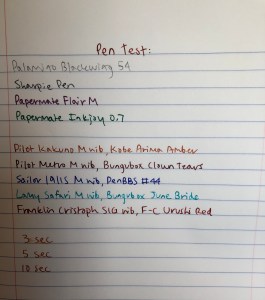 Pen Test:
Palomino Blackwing 54
Sharpie Pen
Papermate Flair M
Papermate Inkjoy 0.7
Pilot Kakuno M nib, Kobe Arima Amber
Pilot Metro M nib, Bungubox Clown Tears
Sailor 1911S M nib, PenBBS #44
Lamy Safari M nib, Bungubox June Bride
Franklin Cristoph SIG nib, F-C Urushi Red
3 sec
5 sec
10 sec